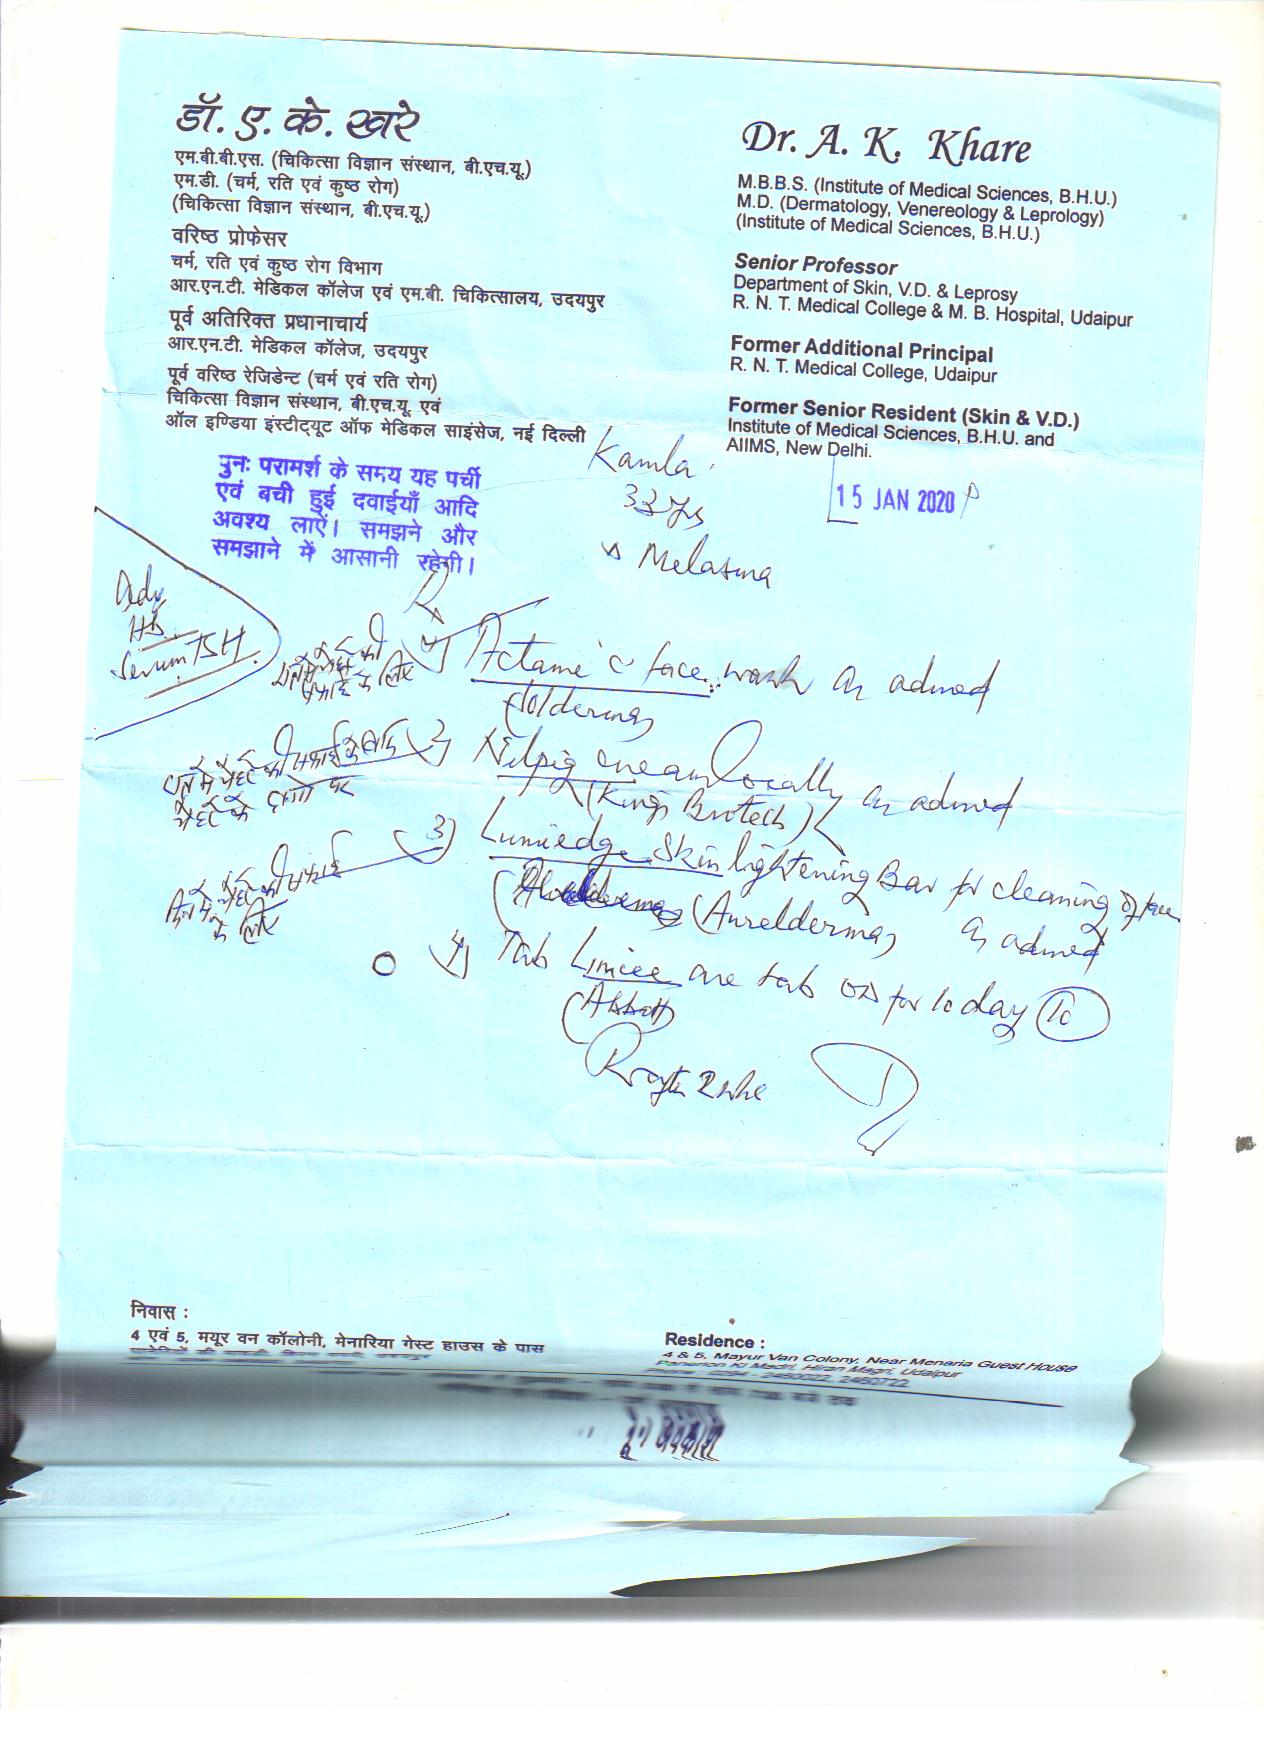 डॉ. ए. के. खरे
एम.बी.बी.एस. (चिकित्सा विज्ञान संस्थान, बी.एच.यू.)
एम.डी. (चर्म, रति एवं कुष्ठ रोग)
(चिकित्सा विज्ञान संस्थान, बी.एच.यू.)
वरिष्ठ प्रोफेसर
चर्म, रति एवं कुष्ठ रोग विभाग
आर.एन.टी. मेडिकल कॉलेज एवं एम.बी. चिकित्सालय, उदयपुर
पूर्व अतिरिक्त प्रधानाचार्य
आर.एन.टी. मेडिकल कॉलेज, उदयपुर
पूर्व वरिष्ठ रेजिडेन्ट (चर्म एवं रति रोग)
चिकित्सा विज्ञान संस्थान, बी.एच.यू. एवं
ऑल इण्डिया इंस्टीट्यूट ऑफ मेडिकल साइंसेज, नई दिल्ली
Dr. A. K. Khare
M.B.B.S. (Institute of Medical Sciences, B.H.U.)
M.D. (Dermatology, Venereology & Leprology)
(Institute of Medical Sciences, B.H.U.)
Senior Professor
Department of Skin, V.D. & Leprosy
R. N. T. Medical College & M. B. Hospital, Udaipur
Former Additional Principal
R. N. T. Medical College, Udaipur
Former Senior Resident (Skin & V.D.)
Institute of Medical Sciences, B.H.U. and
AIIMS, New Delhi.
पुनः परामर्श के समय यह पर्ची
एवं बची हुई दवाईयाँ आदि
अवश्य लाऐं। समझने और
समझाने में आसानी रहेगी।
Kamla
33 yrs
15 JAN 2020
Melasma
Adv
Hb
Serum TSH
1) Actame c face wash as advised
रात में चेहरे की
सफाई के लिए
2) Nilpig cream locally as advised
(Kings Biotech)
रात में चेहरे की सफाई के बाद
चेहरे के दागों पर
3) Lumiedge Skin lightening Bar for cleaning of face
(Aurelderma) as advised
दिन में चेहरे की सफाई
के लिए
4) Tab Limcee one tab OD for 10 day 10
(Abbott)
निवास :
4 एवं 5, मयूर वन कॉलोनी, मेनारिया गेस्ट हाउस के पास
Residence :
4 & 5, Mayur Van Colony, Near Menaria Guest House
Paneriyon Ki Madri, Hiran Magri, Udaipur